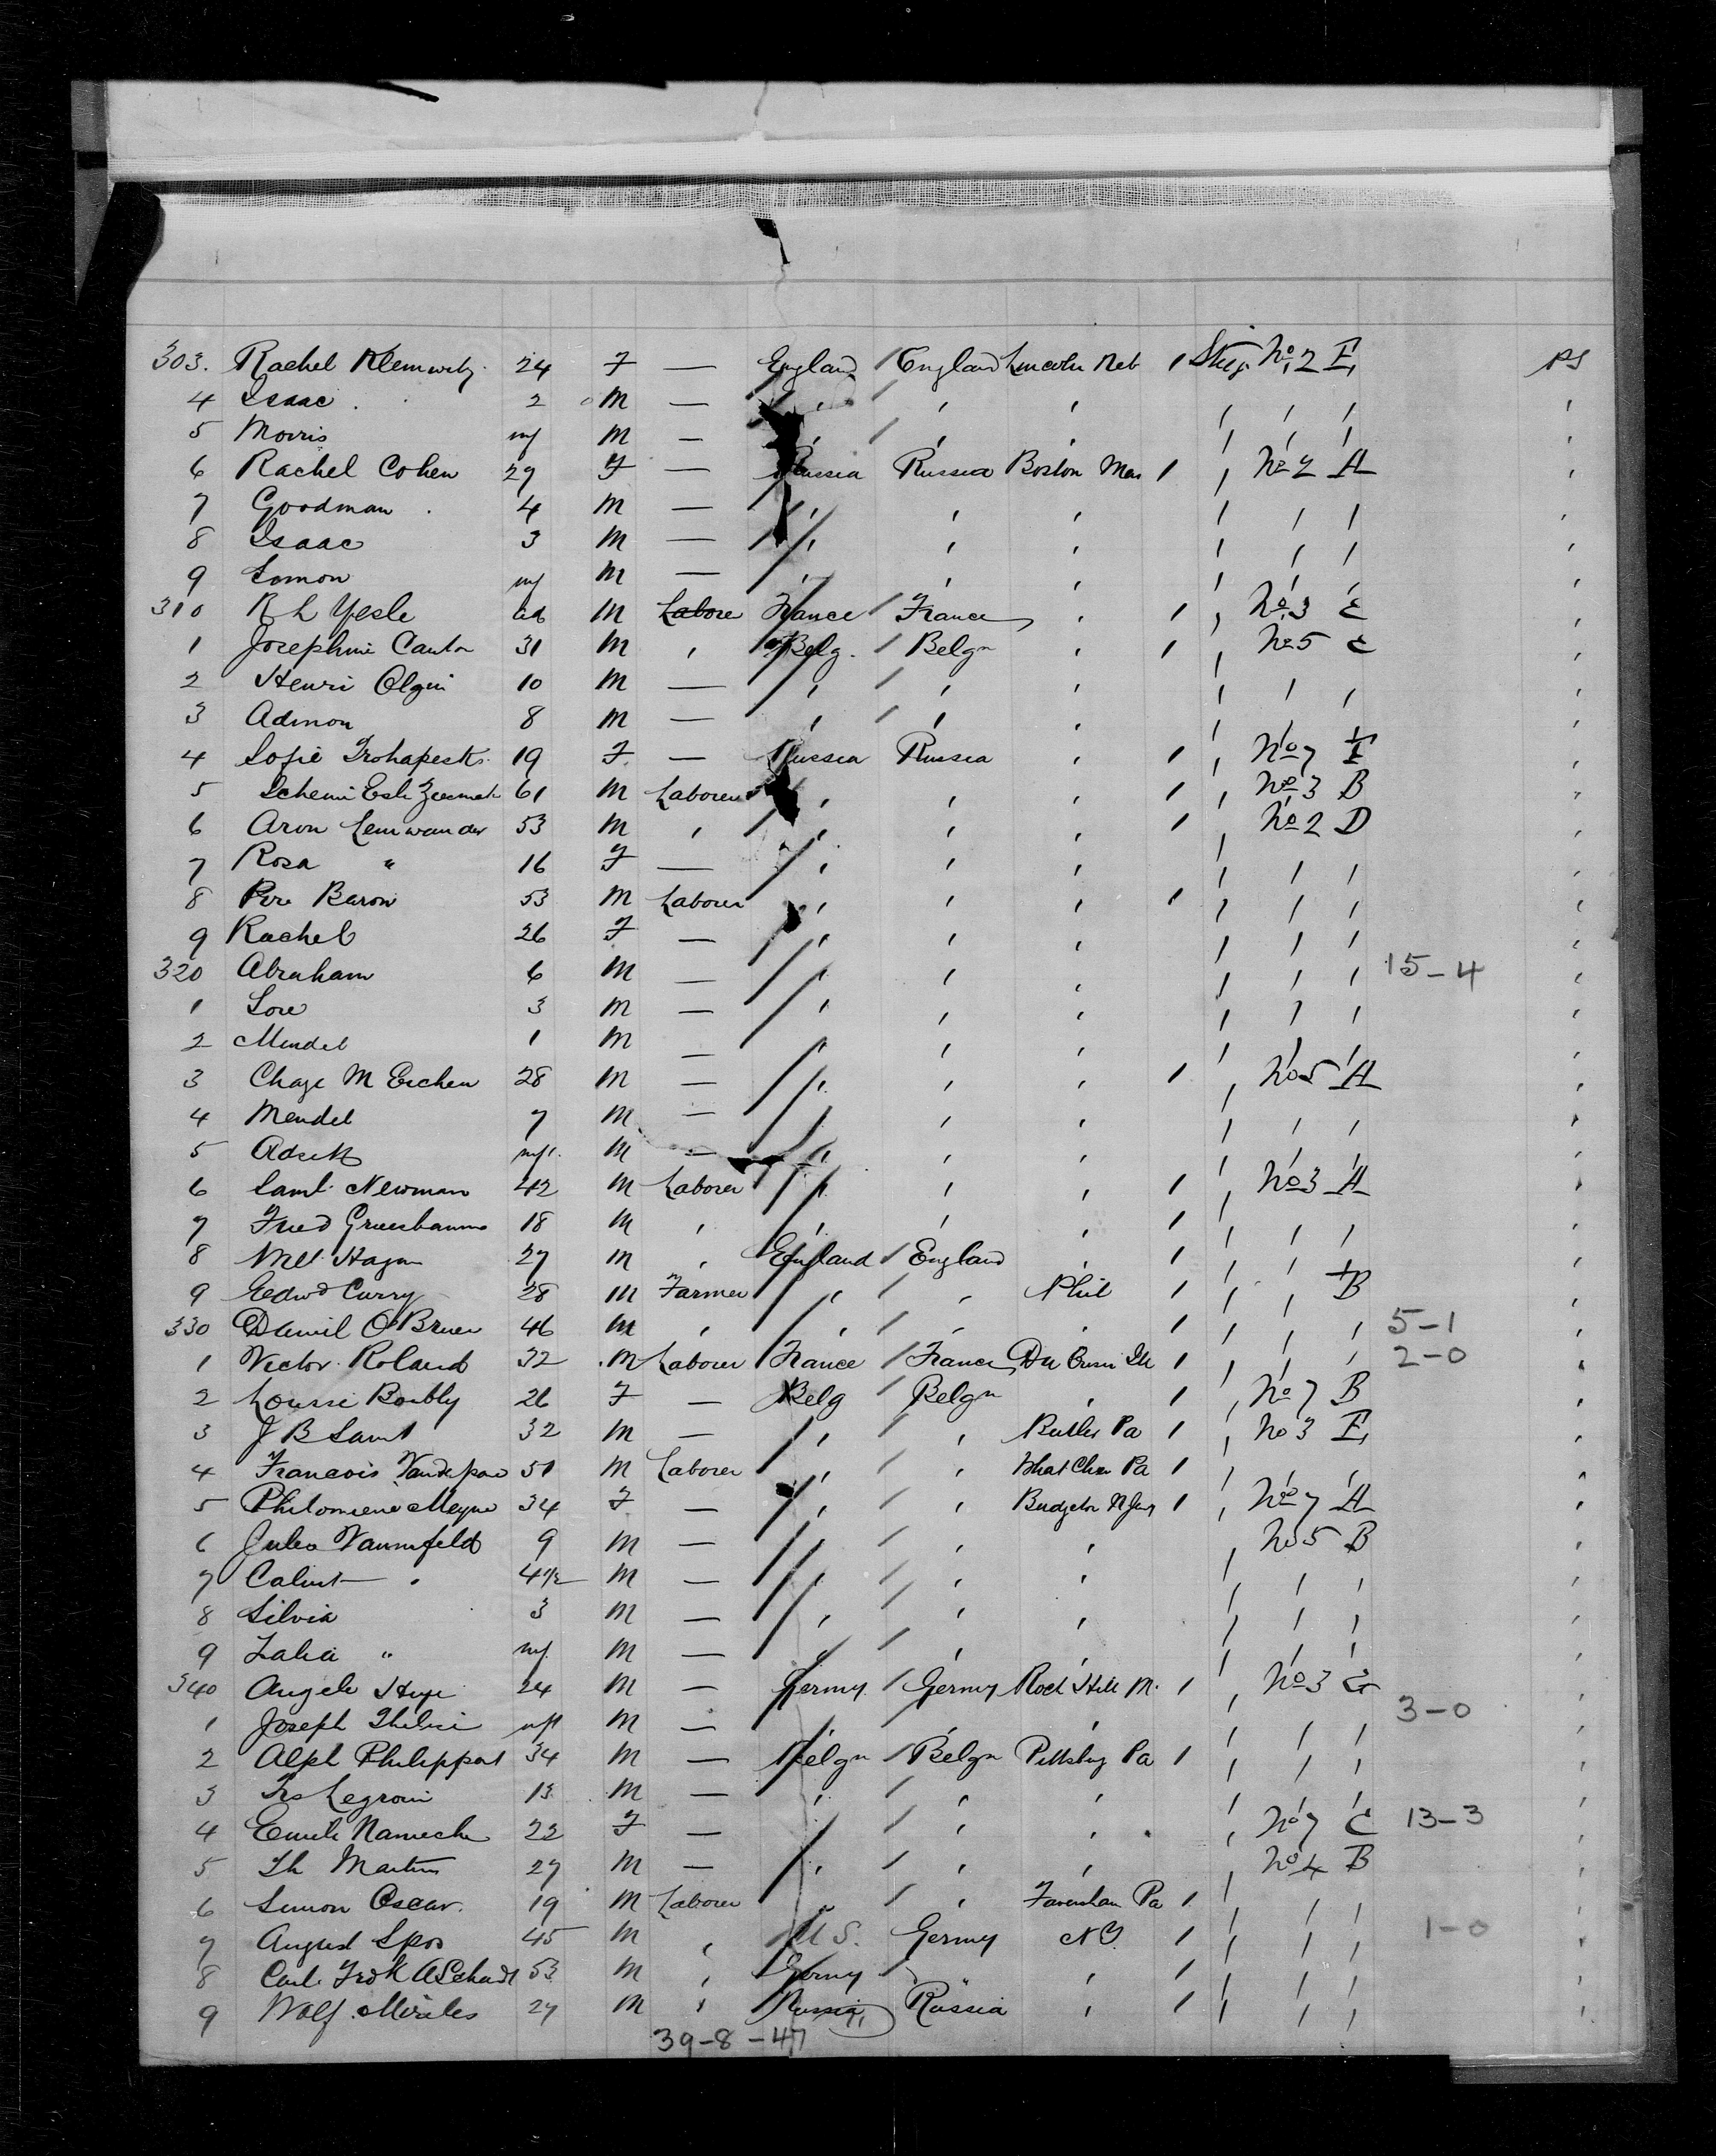 303. Rachel Klemwitz 24 F — England / England Lincoln Neb 1 Stge No 2 E PS
4 Isaac 2 M — " / " " " " " "
5 Morris inf M — " / " " " " " "
6 Rachel Cohen 29 F — Russia Russia Boston Mas 1 " No 2 A "
7 Goodman 4 M — " " " " " " "
8 Isaac 3 M — " " " " " " "
9 Somon inf M — " " " " " " "
310 R L Yesle M Labore France / France " 1 " No 3 C "
1 Josephine Canton 31 M " Belg. / Belgn " 1 " No 5 C "
2 Henri Olgin 10 M — " / " " " " " "
3 Admon 8 M — " / " " " " " "
4 Sofie 19 F — Russia Russia " 1 " No 7 E "
5 Schemi Esk 61 M Laborer " " " 1 " No 3 B "
6 Aron Lemwander 53 M " " " " 1 " No 2 D "
7 Rosa " 16 F — " " " " " " "
8 Pere Baron 53 M Laborer " " " 1 " " " "
9 Rachel 26 F — " " " " " " "
320 Abraham 6 M — " " " " " " 15-4 "
1 Sore 3 M — " " " " " " "
2 Mendel 1 M — " " " " " " "
3 Chaje M Eschen 28 M — " " " 1 " No 5 A "
4 Mendel 7 M — " " " " " " "
5 inf. M — " " " " " " "
6 Saml. Newman 42 M Laborer " " " 1 " No 3 A "
7 Fred Gruesbaum 18 M " " " " 1 " " " "
8 Hagan 27 M " England / England " 1 " " " "
9 Edwd Curry 28 M Farmer " / " Phil 1 " " B "
330 Daniel O'Brien 46 M " " / " " 1 " " " 5-1 "
1 Victor Roland 32 M Laborer France / France Du 1 " " " 2-0 "
2 Lousse Boubly 26 F — Belg / Belgn " 1 " No 7 B "
3 J B Saint 32 M — " / " Butler Pa 1 " No 3 E "
4 Francois 51 M Laborer " / " What Cheer Pa 1 " " " "
5 Philomene Meyne 34 F — " / " Bridgeton N Jery 1 " No 7 A "
6 Jules Vannufeld 9 M — " / " " " No 5 B "
7 " 4 1/2 M — " / " " " " " "
8 Silvia 3 M — " / " " " " " "
9 Zalia " inf M — " / " " " " " "
340 Angele 24 M — Germy / Germy Rock Hill M. 1 " No 3 C
1 Joseph inft M — " " " " " " 3-0 "
2 Alph Philippart 34 M — Belgn / Belgn Pittsburg Pa 1 " " " "
3 Frs Legroin 13 M — " / " " " " " "
4 Emile Nameche 22 F — " / " " " No 7 C 13-3 "
5 Th Martin 27 M — " / " " " No 4 B "
6 Simon Oscar. 19 M Laborer / " Pa 1 " " " "
7 August Spos 45 M " U S. Germy N Y. 1 " " " 1-0 "
8 Carl Fredk ASchadt 53 M " Germy " " 1 " " " "
9 Wolf Mireles 27 M " Russia Russia " 1 " " " "
39-8-47